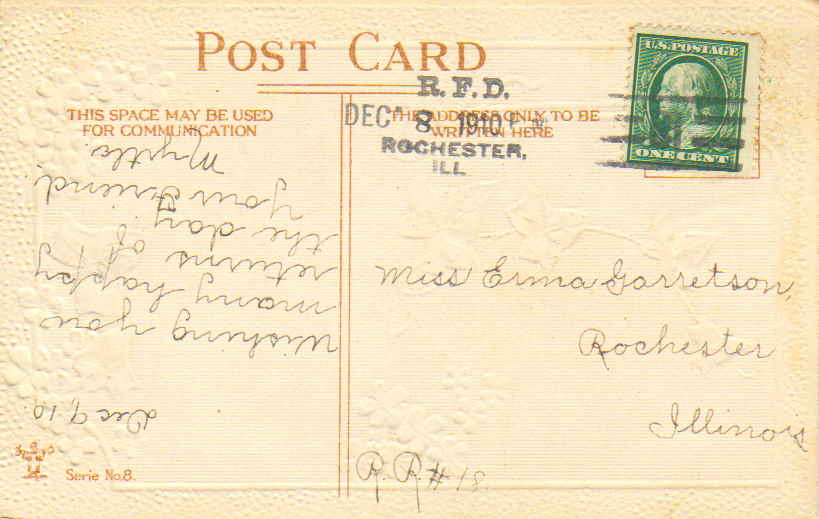 POST CARD
THIS SPACE MAY BE USED
FOR COMMUNICATION
THE ADDRESS ONLY TO BE
WRITTEN HERE
R.F.D.
DEC 8 1910 P M
ROCHESTER,
ILL
U.S. POSTAGE
ONE CENT
Dec 9, 10
Wishing you
many happy
returns of
the day
your Friend
Myrtle.
Miss Erma Garretson,
Rochester
Illinois
R. R. #
Serie No. 8.